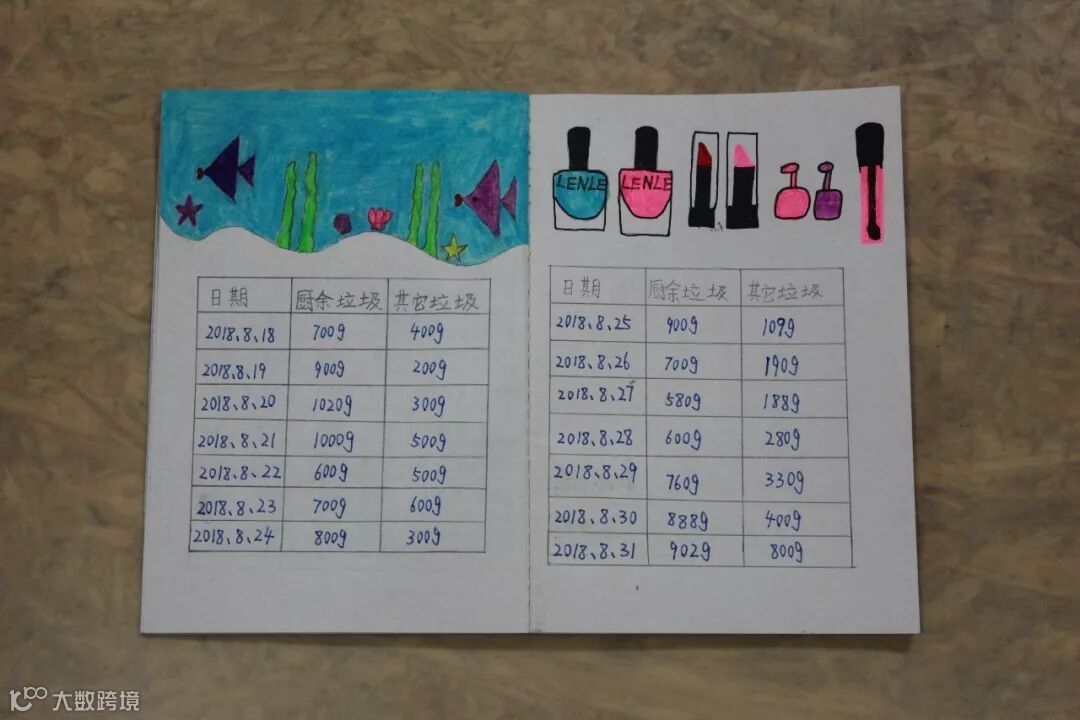 日期 厨余垃圾 其它垃圾
2018.8.18 700g 400g
2018.8.19 900g 200g
2018.8.20 1020g 300g
2018.8.21 1000g 500g
2018.8.22 600g 500g
2018.8.23 700g 600g
2018.8.24 800g 300g
LENLE LENLE
日期 厨余垃圾 其它垃圾
2018.8.25 900g 109g
2018.8.26 700g 190g
2018.8.27 580g 188g
2018.8.28 600g 280g
2018.8.29 760g 330g
2018.8.30 888g 400g
2018.8.31 902g 800g
大数跨境